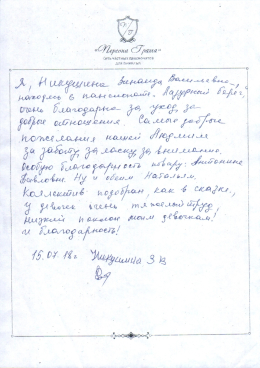 «Пересвет Групп»
Я, Никулшина Зинаида Васильевна,
нахожусь в пансионате "Лазурный берег",
очень благодарна за уход, за
добрые отношения. Самые добрые
пожелания нашей Людмиле
за заботу, за ласку, за внимание.
Особую благодарность повару Антонине
Павловне. Ну и обеим Натальям.
Коллектив подобран, как в сказке,
у девочек очень тяжелый труд,
низкий поклон моим девочкам!
и благодарность!
15.07.18г
З.В